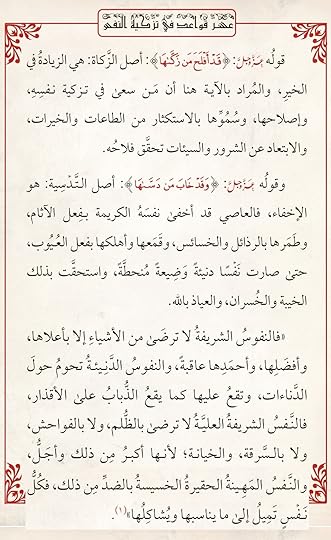 عشر قواعد في تزكية النفس
قولُه عَزَّوَجَلَّ: ﴿قَدْ أَفْلَحَ مَن زَكَّىٰهَا﴾: أصل الزَّكاة: هي الزيادةُ في
الخيرِ، والمُراد بالآية هنا أن مَـن سعىٰ في تـزكية نفسِهِ،
وإصلاحها، وسُمُوِّها بالاستكثار من الطاعات والخيرات،
والابتعاد عن الشرور والسيئات تحقَّق فلاحُه.
وقولُه عَزَّوَجَلَّ: ﴿وَقَدْ خَابَ مَن دَسَّىٰهَا﴾: أصل التَّدْسِية: هو
الإخفاء، فالعاصي قد أخفىٰ نفسَهُ الكريمة بِفِعل الآثام،
وطَمَرها بالرذائل والخسائس، وقَمَعها وأهلكها بفعل العُيُوب،
حتىٰ صارت نَفْسًا دنيئةً وَضِيعةً مُنحطَّة، واستحقَّت بذلك
الخيبة والخُسران، والعياذ بالله.
«فالنفوسُ الشريفةُ لا ترضَىٰ من الأشياءِ إلا بأعلاها،
وأفضَلِها، وأحمَدِها عاقبةً، والنفوسُ الدَّنِيـئةُ تحومُ حولَ
الدَّناءات، وتقعُ عليها كما يقعُ الذُّبابُ علىٰ الأقذار،
فالنَّـفسُ الشريفةُ العليَّـةُ لا ترضىٰ بالظُّلم، ولا بالفواحش،
ولا بالـسَّرقة، والخيانـة؛ لأنـها أكبـرُ مِن ذلك وأجَـلُّ،
والنَّـفسُ المَهِـينةُ الحقيرةُ الخسيسةُ بالضدِّ مِن ذلك، فكُلُّ
نَـفْسٍ تَمِيلُ إلىٰ ما يناسبها ويُشاكِلُها»(١).